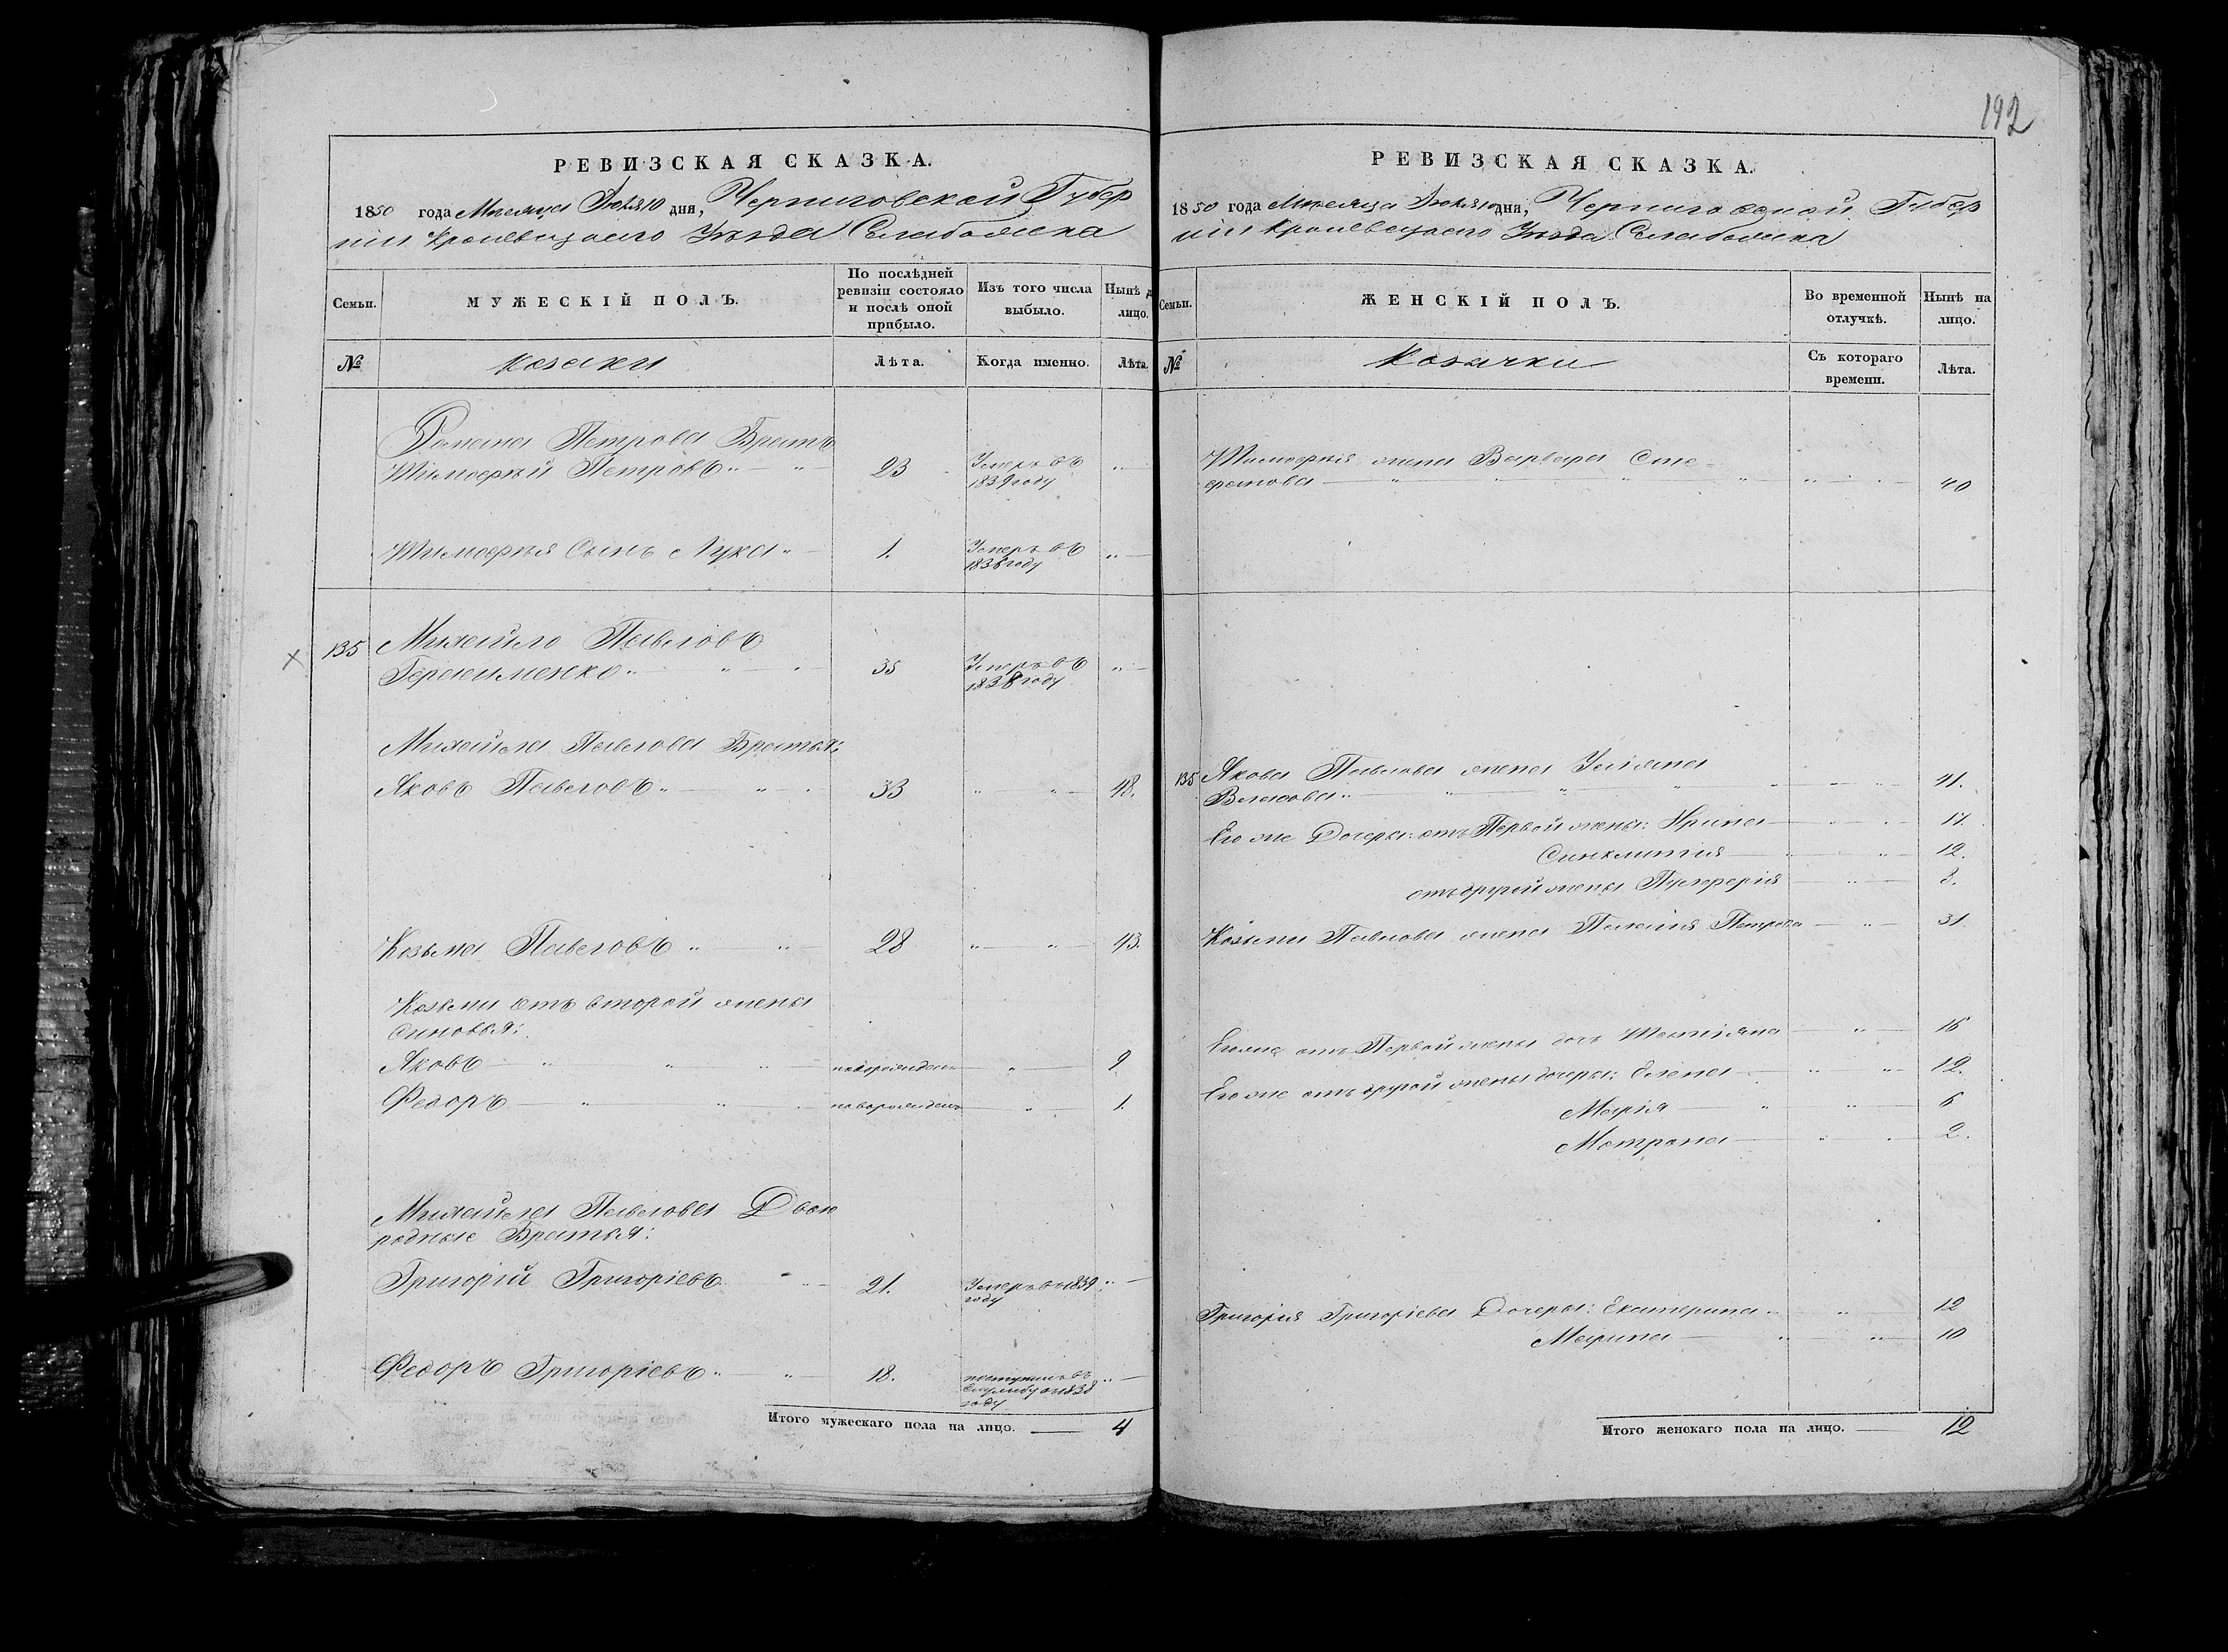 192
РЕВИЗСКАЯ СКАЗКА.
1850 года Месяца Июля 10 дня, Черниговской Губер
нии Кролевецкаго Уезда
Семьи.
МУЖЕСКІЙ ПОЛЪ.
По послѣдней ревизіи состояло и послѣ оной прибыло.
Изъ того числа выбыло.
Нынѣ
лицо.
№
Козаки
Лѣта.
Когда именно.
Лѣта.
Романа Петрова Братъ
Тимофей Петровъ 23 Умеръ въ
1839 году
Тимофея Сынъ Лука 1. Умеръ въ
1838 году
135 Михайло Павловъ
Герасименко 35 Умеръ въ
1838 году
Михайла Павлова Братья:
Яковъ Павловъ 33 48.
Козьма Павловъ 28 43.
Козьми отъ второй жены
Синовья:
Яковъ новорожденъ 9
Федоръ новорожденъ 1.
Михайла Павлова Двою
родные Братья:
Григорій Григоріевъ 21. Умеръ въ 1839
году
Федоръ Григоріевъ 18. поступилъ въ
Службу въ 1838
году
Итого мужескаго пола на лицо. 4
РЕВИЗСКАЯ СКАЗКА.
1850 года Месяца Июля 10 дня, Черниговской Губер
нии Кролевецкаго Уезда
Семьи.
ЖЕНСКІЙ ПОЛЪ.
Во временной отлучкѣ.
Нынѣ на лицо.
№
Козачки
Съ котораго времени.
Лѣта.
Тимофея жена Варвара Сте
фанова 40
135 Якова Павлова жена Уліяна
Власова 41.
Его же Дочери: отъ Первой жены: Ирина 17.
Синклития 12.
отъ другой жены Пульхерія 8.
Козьмы Павлова жена Пелагія Петрова 31
Его же отъ Первой жены дочь Татіяна 16
Его же отъ другой жены дочери: Елена 12.
Марія 6
Матрона 2.
Григорія Григоріева Дочери: Екатерина 12
Марина 10
Итого женскаго пола на лицо. 12